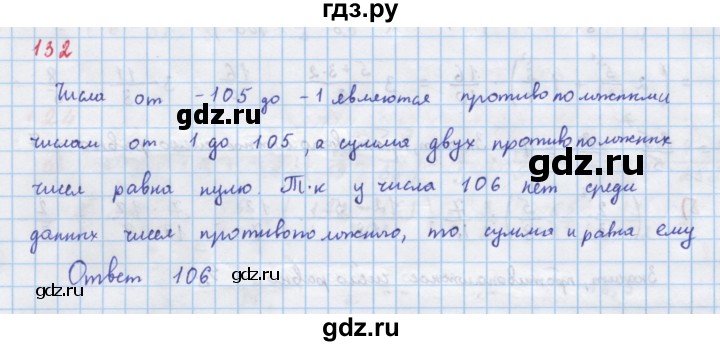 гдз.ру
132
Числа от -105 до -1 являются противоположными
числам от 1 до 105, а сумма двух противоположных
чисел равна нулю. Т.к у числа 106 нет среди
данных чисел противоположного, то сумма и равна ему
Ответ 106
gdz.ru
gdz.ru
gdz.ru
gdz.ru
gdz.ru
gdz.ru